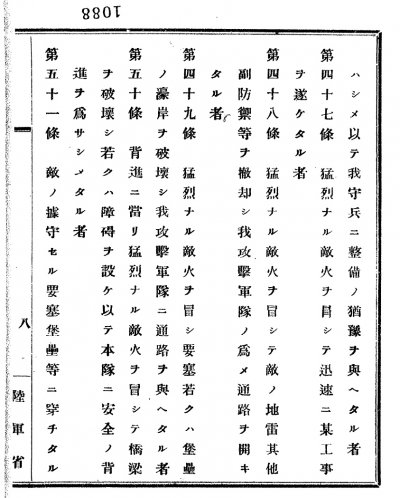 1088
ハシメ以テ我守兵ニ整備ノ猶豫ヲ與ヘタル者
第四十七條 猛烈ナル敵火ヲ冒シテ迅速ニ某工事
ヲ遂ケタル者
第四十八條 猛烈ナル敵火ヲ冒シテ敵ノ地雷其他
副防禦等ヲ撤却シ我攻擊軍隊ノ爲メ通路ヲ開キ
タル者
第四十九條 猛烈ナル敵火ヲ冒シ要塞若クハ堡壘
ノ濠岸ヲ破壞シ我攻擊軍隊ニ通路ヲ與ヘタル者
第五十條 背進ニ當リ猛烈ナル敵火ヲ冒シテ橋梁
ヲ破壞シ若クハ障碍ヲ設ケ以テ本隊ニ安全ノ背
進ヲ爲サシメタル者
第五十一條 敵ノ據守セル要塞堡壘等ニ穿チタル
八
陸軍省